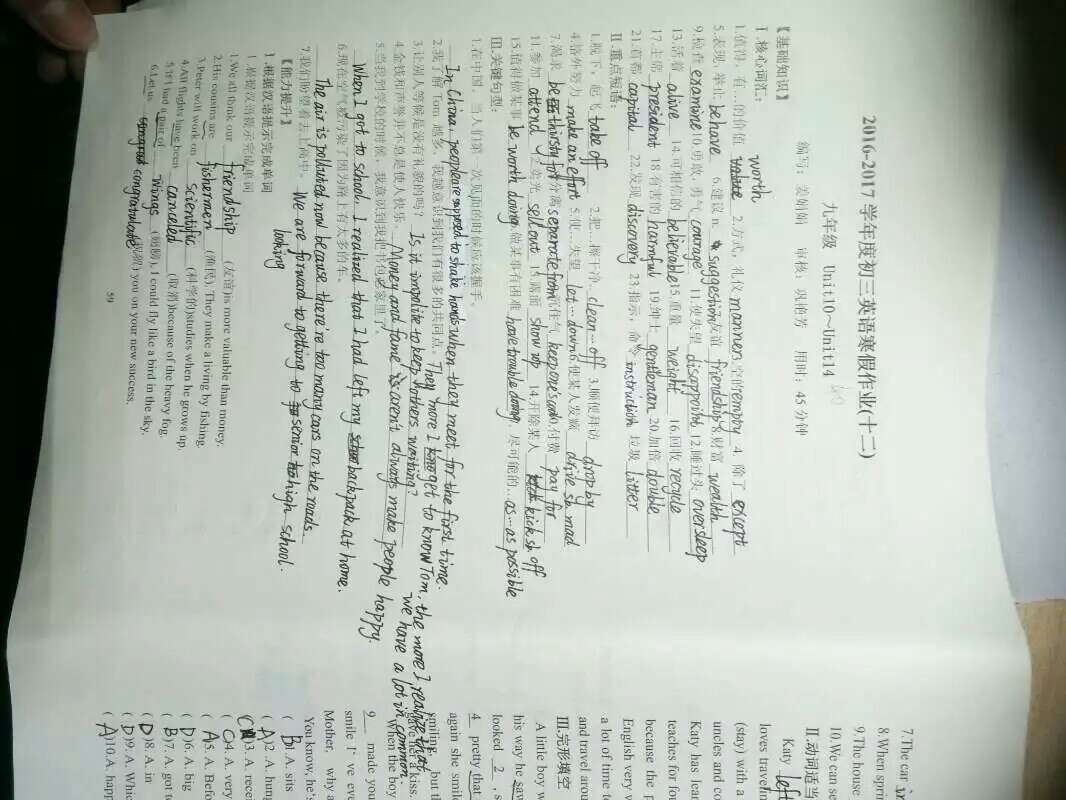 2016-2017学年度初三英语寒假作业(十二)
九年级 Unit10~Unit14
编写：姜娟娟 审核：巩艳芳 用时：45分钟
【基础知识】
I.核心词汇：
1.值得，有…的价值 worth 2.方式，礼仪 manner 3.空的 empty 4.除了 except
5.表现，举止 behave 6.建议 n. suggestion 7.友谊 friendship 8.财富 wealth
9.检查 examine 10.勇敢，勇气 courage 11.使失望 disappoint 12.睡过头 oversleep
13.活着 alive 14.可相信的 believable 15.重量 weight 16.回收 recycle
17.主席 president 18.有害的 harmful 19.绅士 gentleman 20.加倍 double
21.首都 capital 22.发现 discovery 23.指示，命令 instruction 垃圾 litter
II.重点短语：
1.脱下，起飞 take off 2.把…擦干净 clean…off 3.顺便拜访 drop by
4.格外努力 make an effort 5.使…失望 let…down 6.使某人发疯 drive sb mad
7.渴求 be thirsty for 分离 separate from 付费 pay for
11.参加 attend 12.卖光 sell out 13.露面 show up 14.开除某人 kick sb off
15.值得做某事 be worth doing 做某事有困难 have trouble doing 尽可能的… as…as possible
III.关键句型：
1.在中国，当人们第一次见面的时候应该握手。
In China, people are supposed to shake hands when they meet for the first time.
2.我了解Tom越多，我越意识到我们有很多的共同点。 The more I get to know Tom, the more I realize that we have a lot in common.
3.让别人等候是没有礼貌的吗？ Is it impolite to keep others waiting?
4.金钱和声誉并不总是使人快乐 Money and fame aren't always make people happy.
5.当我到学校的时候，我意识到我把书包忘家里了。
When I got to school, I realized that I had left my backpack at home.
6.现在空气被污染了因为路上有太多的车。
The air is polluted now because there're too many cars on the roads.
7.我们盼望着去上高中。 We are looking forward to getting to senior high school.
【能力提升】
I.根据汉语提示完成单词
1 根据汉语提示完成单词
1.We all think our friendship (友谊)is more valuable than money.
2.His cousins are fishermen (渔民). They make a living by fishing.
3.Peter will work on scientific (科学的)studies when he grows up.
4.All flights have been canceled (取消)because of the heavy fog.
5.If I had a pair of wings (翅膀), I could fly like a bird in the sky.
6.Let us congratulate (祝贺) you on your new success.
59
7.The car
8.When spri
9.The house
10.We can se
II.动词适当
Katy left
loves travelin
(stay) with a
uncles and co
Katy has lear
teachers for fo
because the p
English very v
a lot of time t
and travel arou
III.完形填空
A little boy w
his way he saw
looked 2 , s
4 pretty that
again she smile
smiling, but th
gave her a kiss.
When the boy
9 made you
smile I've eve
Mother, why a
You know, he's
( B )1.A. sits
( A )2.A. hung
( )3.A. recei
( C )4.A. very
( A )5.A. Befo
( D )6.A. big
( B )7.A. got t
( D )8.A. in
( D )9.A. Whic
( A )10.A. happ